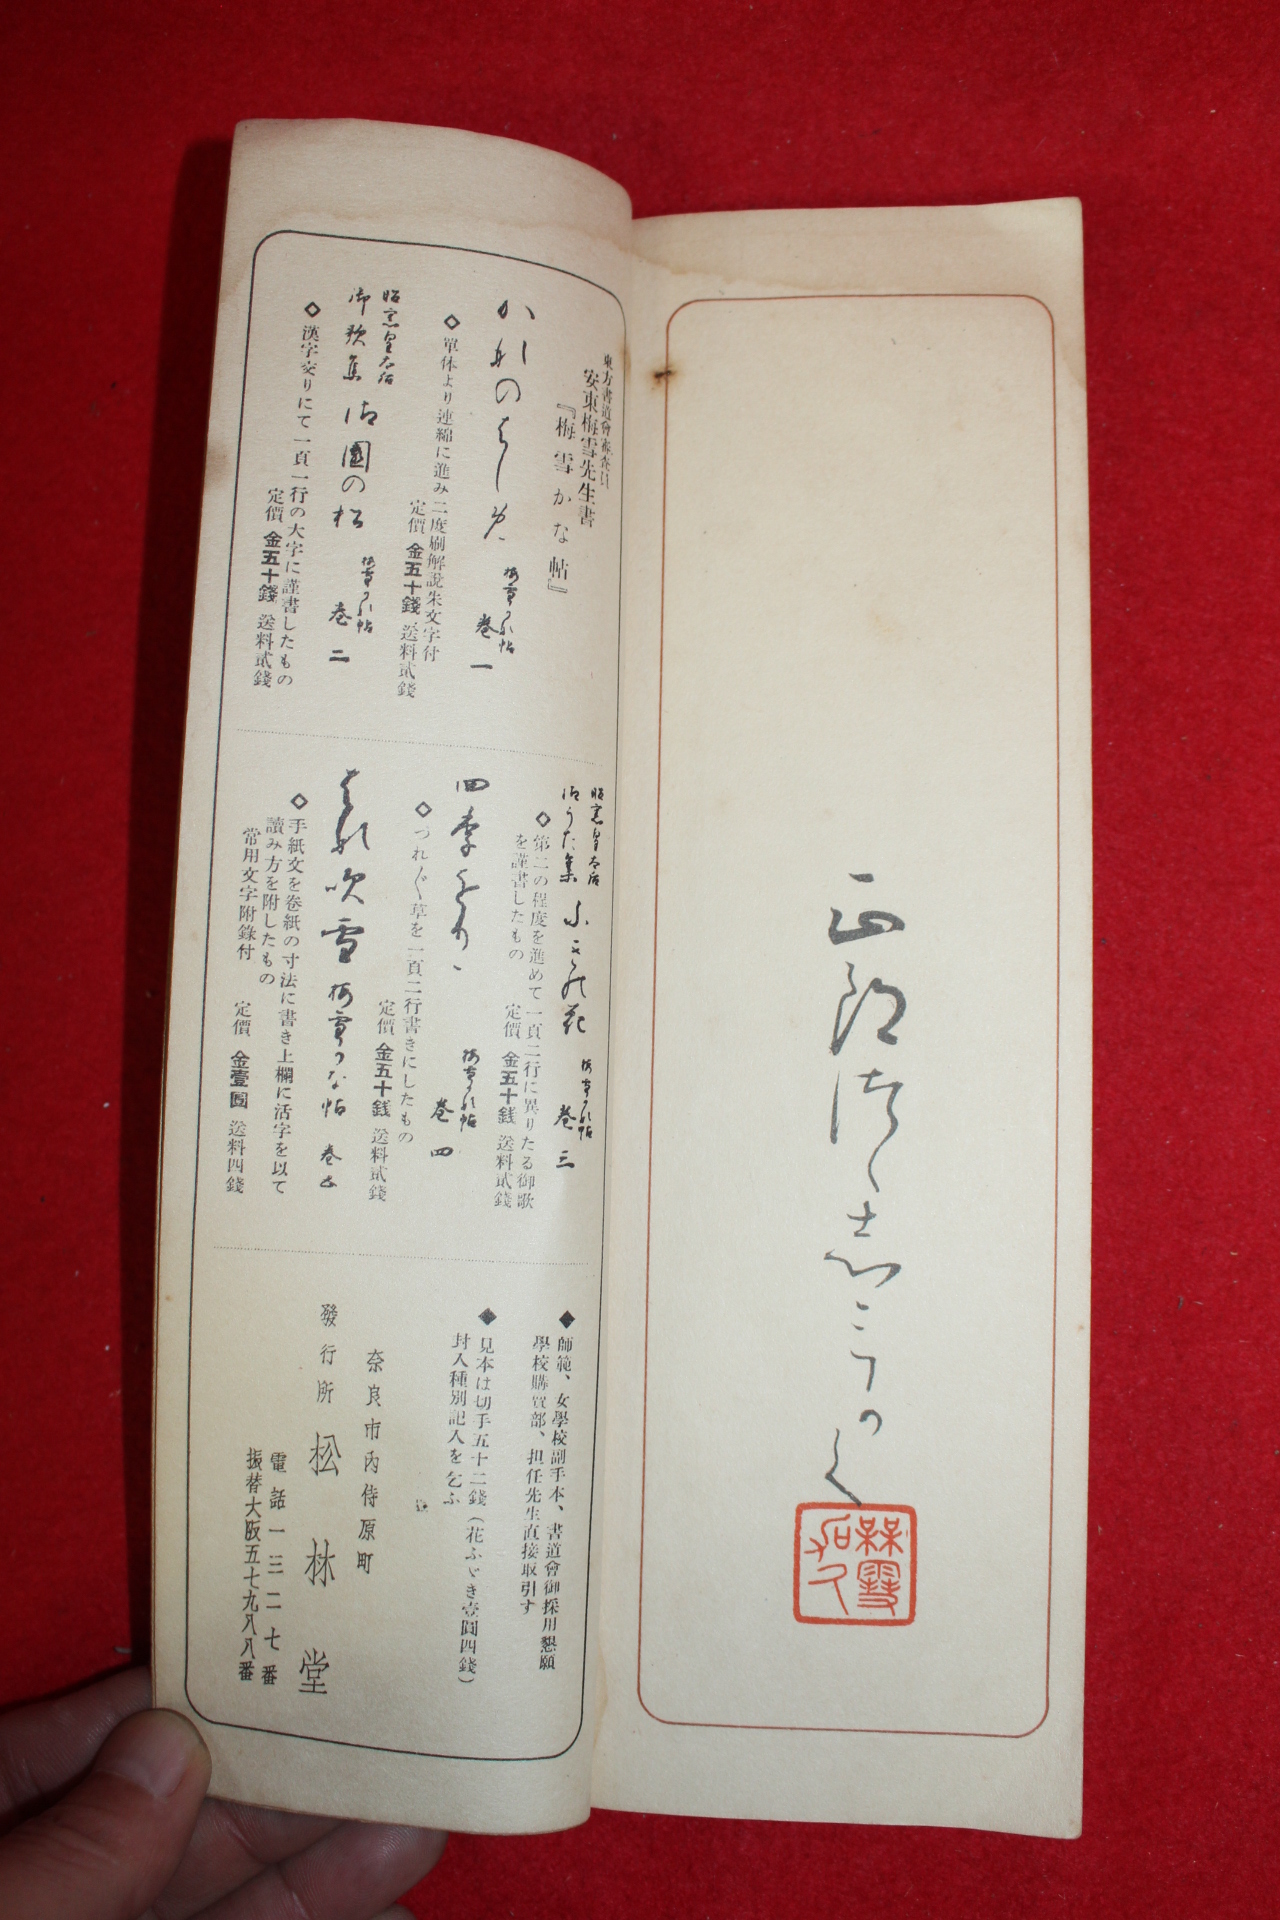 東方書道會審査員
安東梅雪先生書
『梅雪かな帖』
かなのはしめ 梅雪かな帖 巻一
◇單体より連綿に進み二度刷解説朱文字付
定價 金五十錢 送料貳錢
昭憲皇太后
御歌集 御園の松 梅雪かな帖 巻二
◇漢字交りにて一頁一行の大字に謹書したもの
定價 金五十錢 送料貳錢
昭憲皇太后
御うた集 梅雪かな帖 巻三
◇第二の程度を進めて一頁二行に異りたる御歌
を謹書したもの
定價 金五十錢 送料貳錢
四季をり〱 梅雪かな帖 巻四
◇つれ〲草を一頁二行書きにしたもの
定價 金五十錢 送料貳錢
はな吹雪 梅雪かな帖 巻五
◇手紙文を巻紙の寸法に書き上欄に活字を以て
讀み方を附したもの
常用文字附錄付
定價 金壹圓 送料四錢
◆師範、女學校副手本、書道會御採用懇願
學校購買部、担任先生直接取引す
◆見本は切手五十二錢(花ふゞき壹圓四錢)
封入種別記入を乞ふ
奈良市內侍原町
發行所 松林堂
電話一三二七番
振替大阪五七九八八番